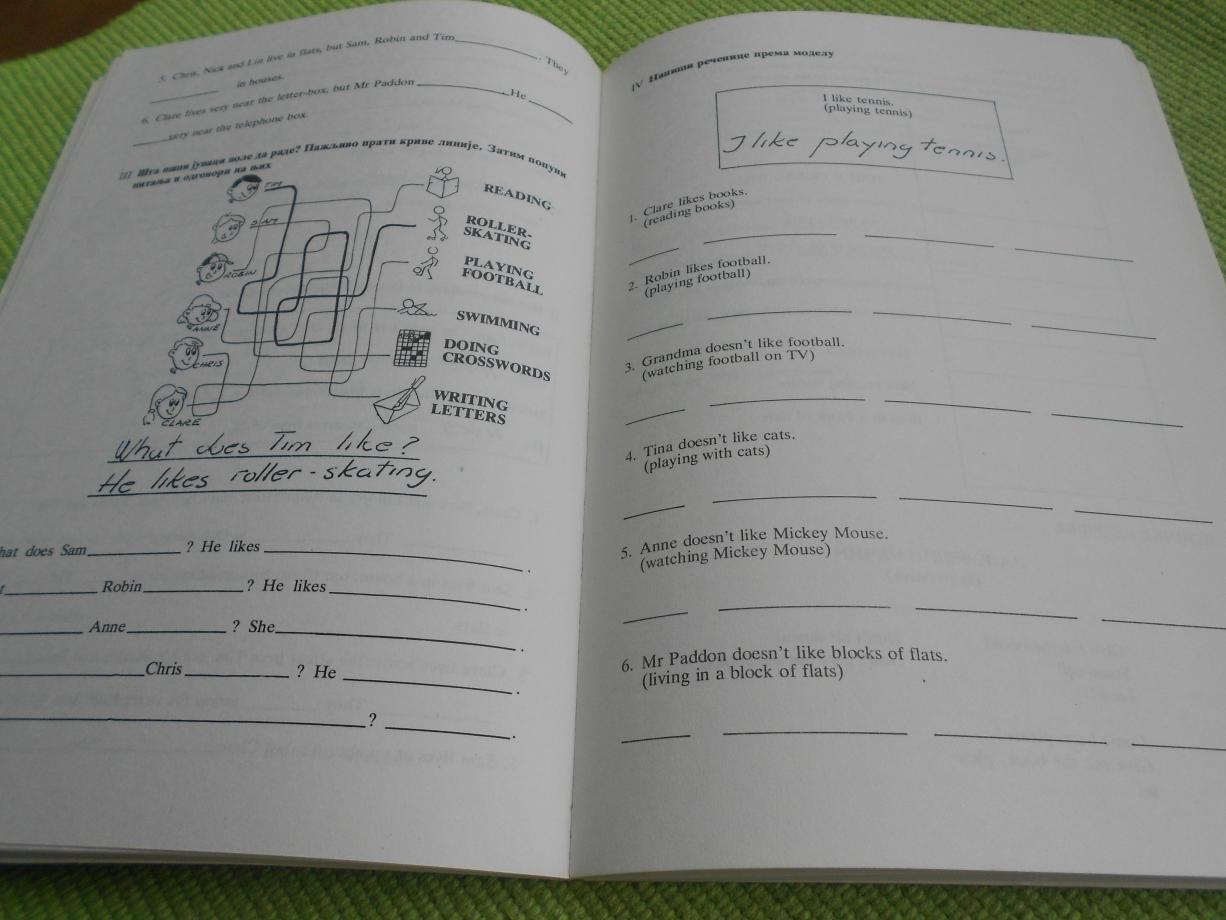 5. Chris, Nick and Lin live in flats, but Sam, Robin and Tim__________. They
__________ in houses.
6. Clare lives very near the letter-box, but Mr Paddon __________. He ______
______very near the telephone box.
III Шта наши јунаци воле да раде? Пажљиво прати криве линије. Затим попуни
питања и одговори на њих
TIM
READING
SAM
ROLLER-
SKATING
ROBIN
PLAYING
FOOTBALL
ANNE
SWIMMING
CHRIS
DOING
CROSSWORDS
CLARE
WRITING
LETTERS
What does Tim like?
He likes roller-skating.
hat does Sam__________? He likes ____________________.
t__________ Robin__________? He likes ____________________.
__________ Anne__________? She____________________.
__________Chris__________? He ____________________.
____________________? __________.
IV Напиши реченице према моделу
I like tennis.
(playing tennis)
I like playing tennis.
1. Clare likes books.
(reading books)
______ __________ __________ __________
2. Robin likes football.
(playing football)
______ __________ __________ __________
3. Grandma doesn't like football.
(watching football on TV)
______ __________ __________ __________
4. Tina doesn't like cats.
(playing with cats)
______ __________ __________ __________
5. Anne doesn't like Mickey Mouse.
(watching Mickey Mouse)
______ __________ __________ __________
6. Mr Paddon doesn't like blocks of flats.
(living in a block of flats)
______ __________ __________ __________